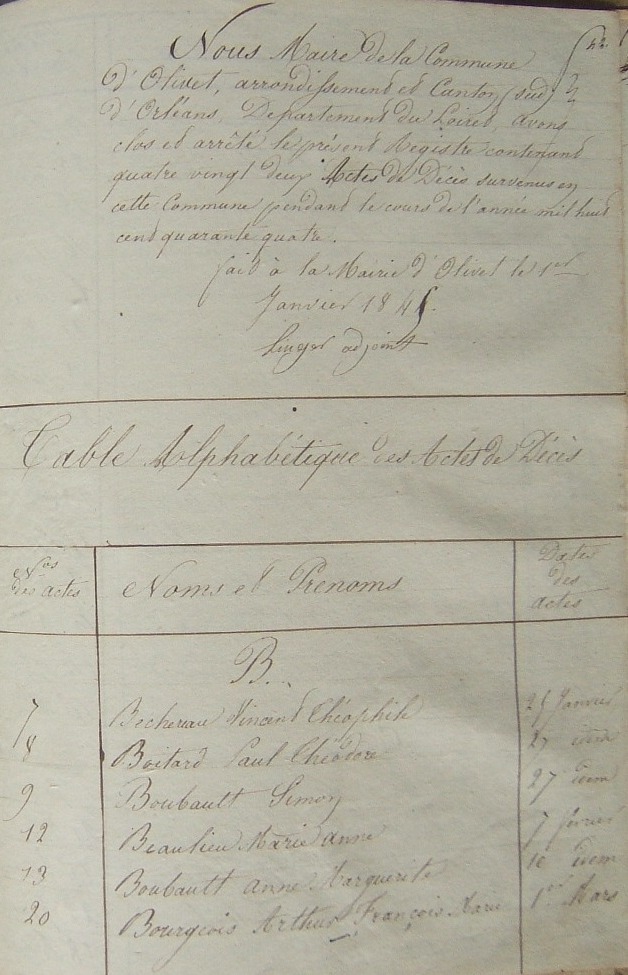 Nous Maire de la Commune
d'Olivet, arrondissement et Canton (sud)
d'Orléans, Departement du Loiret, avons
clos et arrêté le présent Registre contenant
quatre vingt deux Actes de Décès survenus en
cette Commune pendant le cours de l'année mil huit
cent quarante quatre.
fait à la Mairie d'Olivet le 1er
Janvier 1845.
adjoint
Table Alphabétique des Actes de Décès
Nos
des actes
Noms et Prenoms
Dates
des
actes
B.
7 Bechereau Vincent Théophile 25 Janvier
8 Boitard Paul Théodore 27 idem
9 Boubault Simon 27 idem
12 Beaulieu Marie Anne 7 février
13 Boubault Anne Marguerite 10 idem
20 Bourgeois Arthur François Marie 1er Mars